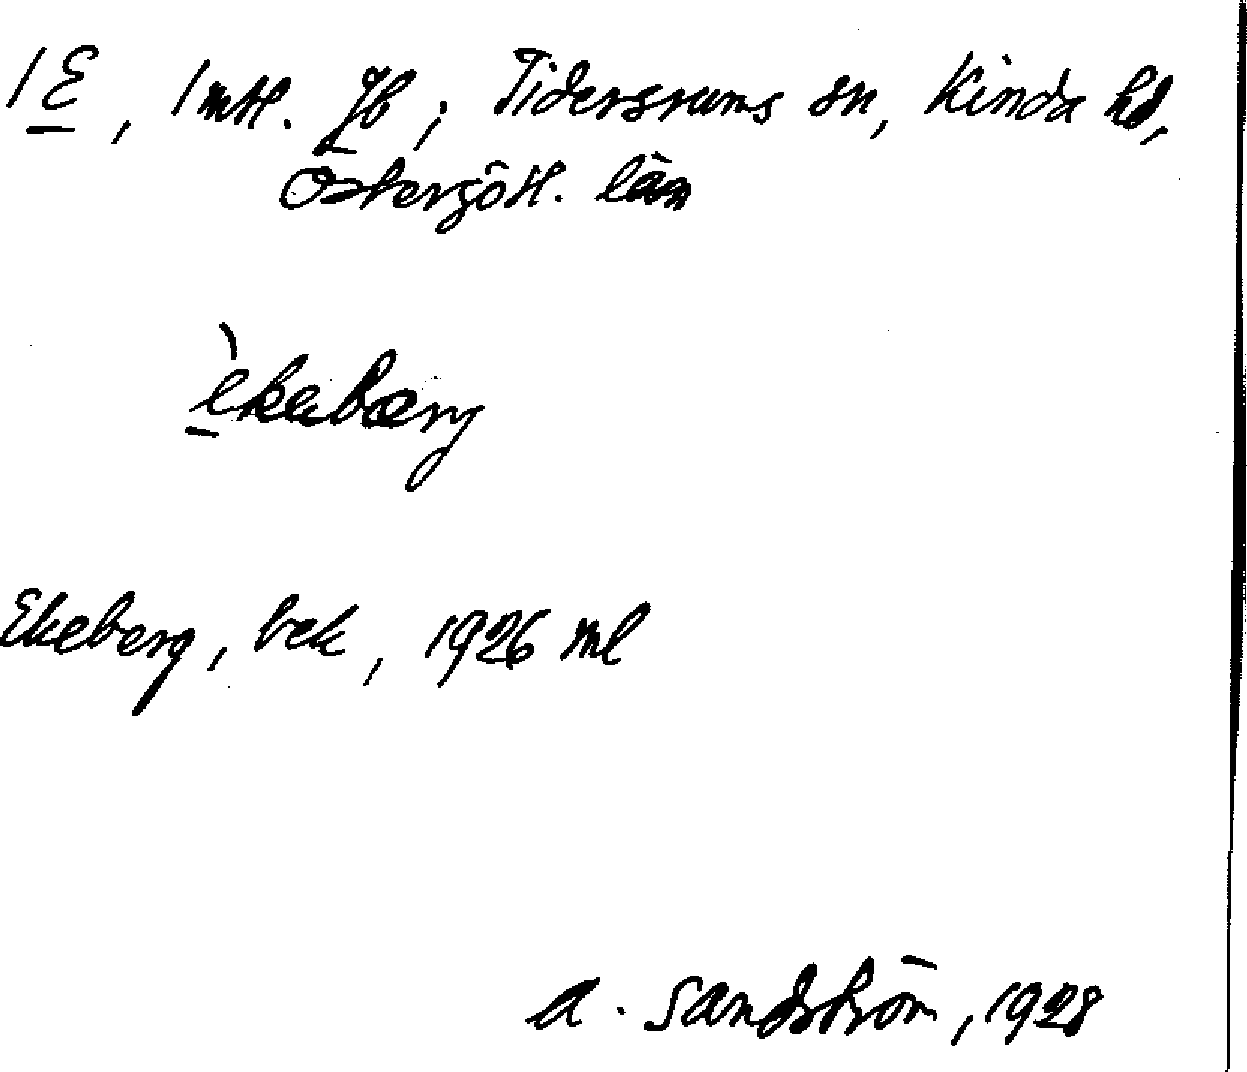 1 E, 1 mtl. Jb; Tidersrums sn, Kinda hd,
Östergötl. län
èkabærj
Ekeberg, bek, 1926 ml
A. Sandström, 1928